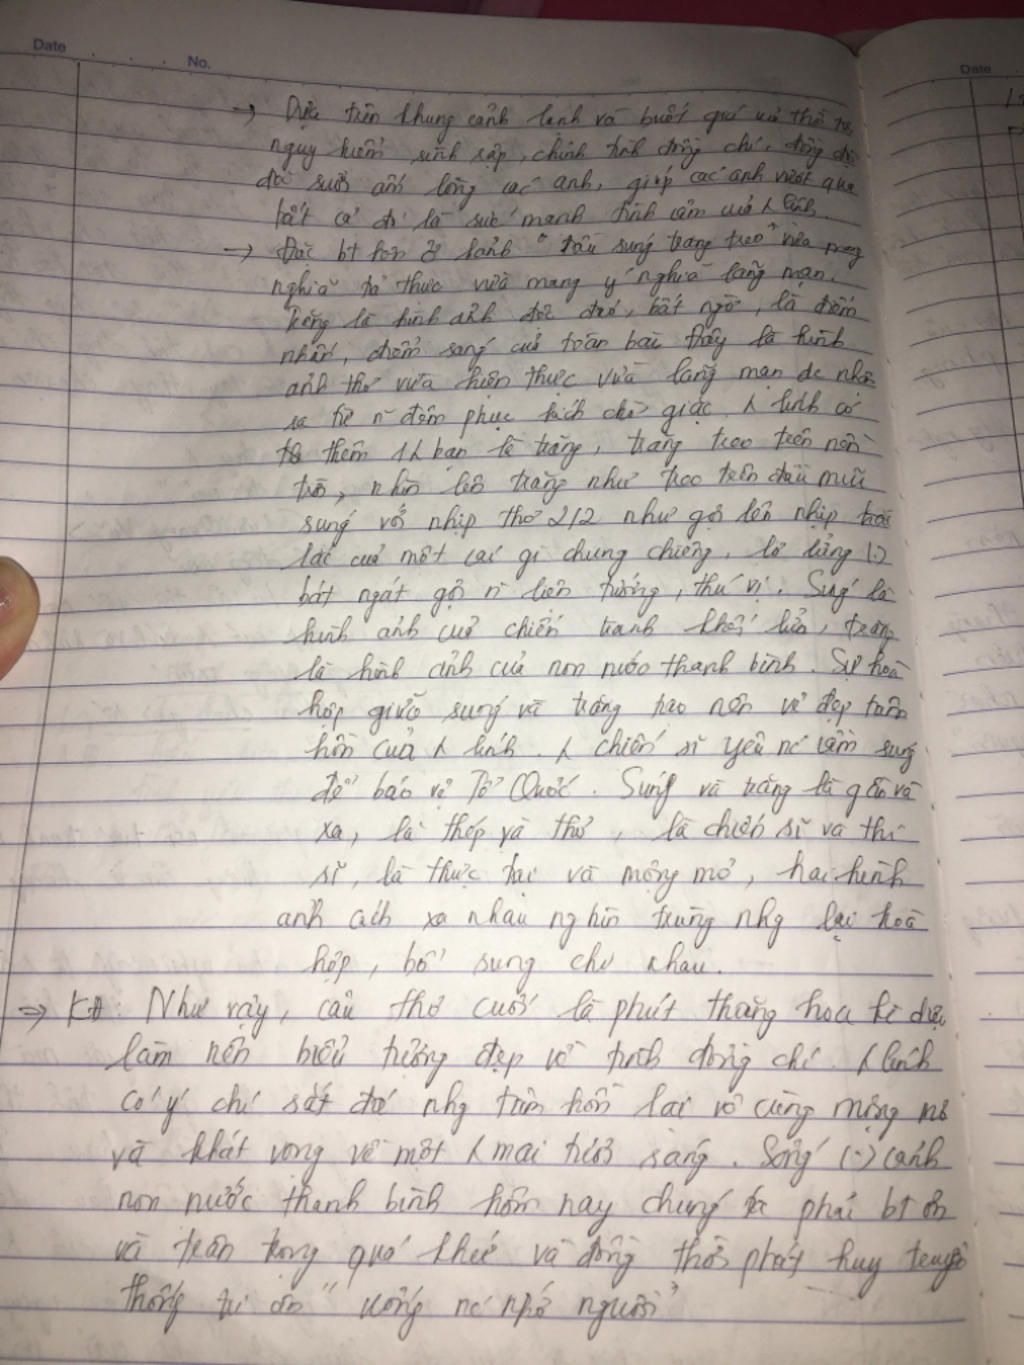 Date
No.
Date
→ Dựa trên khung cảnh lạnh và buốt giá
nguy hiểm rình rập, chính tình đồng chí, đồng đội
đã sưởi ấm lòng các anh, giúp các anh vượt qua
tất cả đó là sức mạnh tình cảm của λ lính.
→ Đặc bt hơn ở hảnh "đầu súng trăng treo" vừa mang
nghĩa tả thực vừa mang ý nghĩa lãng mạn.
là hình ảnh độc đáo, bất ngờ, là điểm
nhấn, điểm sáng của toàn bài. Đây là hình
ảnh thơ vừa hiện thực vừa lãng mạn đc nhận
ra từ n~ đêm phục kích chờ giặc. λ lính có
thêm 1λ bạn là trăng, trăng treo trên nền
trời, nhìn lên trăng như treo trên đầu mũi
súng với nhịp thơ 2/2 như gợi lên nhịp
lắc của một cái gì chung chiêng, lơ lửng (.)
bát ngát gợi n~ liên tưởng, thú vị. Súng là
hình ảnh của chiến tranh khói lửa, trăng
là hình ảnh của non nước thanh bình. Sự hoà
hợp giữa súng và trăng tạo nên vẻ đẹp tâm
hồn của λ lính. λ chiến sĩ yêu nc cầm súng
để bảo vệ Tổ Quốc. Súng và trăng là gần và
xa, là thép và thơ, là chiến sĩ và thi
sĩ, là thực tại và mộng mơ, hai hình
ảnh cách xa nhau nghìn trùng nhg lại hoà
hợp, bổ sung cho nhau.
⇒ KĐ: Như vậy, câu thơ cuối là phút thăng hoa kì diệu
làm nên biểu tượng đẹp về tình đồng chí. λ lính
có ý chí sắt đá nhg tâm hồn lại vô cùng mộng mơ
và khát vọng về một λ mai tươi sáng. Sống (.) cảnh
non nước thanh bình hôm nay chúng ta phải bt ơn
và trân trọng quá khứ và đồng thời phát huy truyền
thống tri ân "uống nc nhớ nguồn"